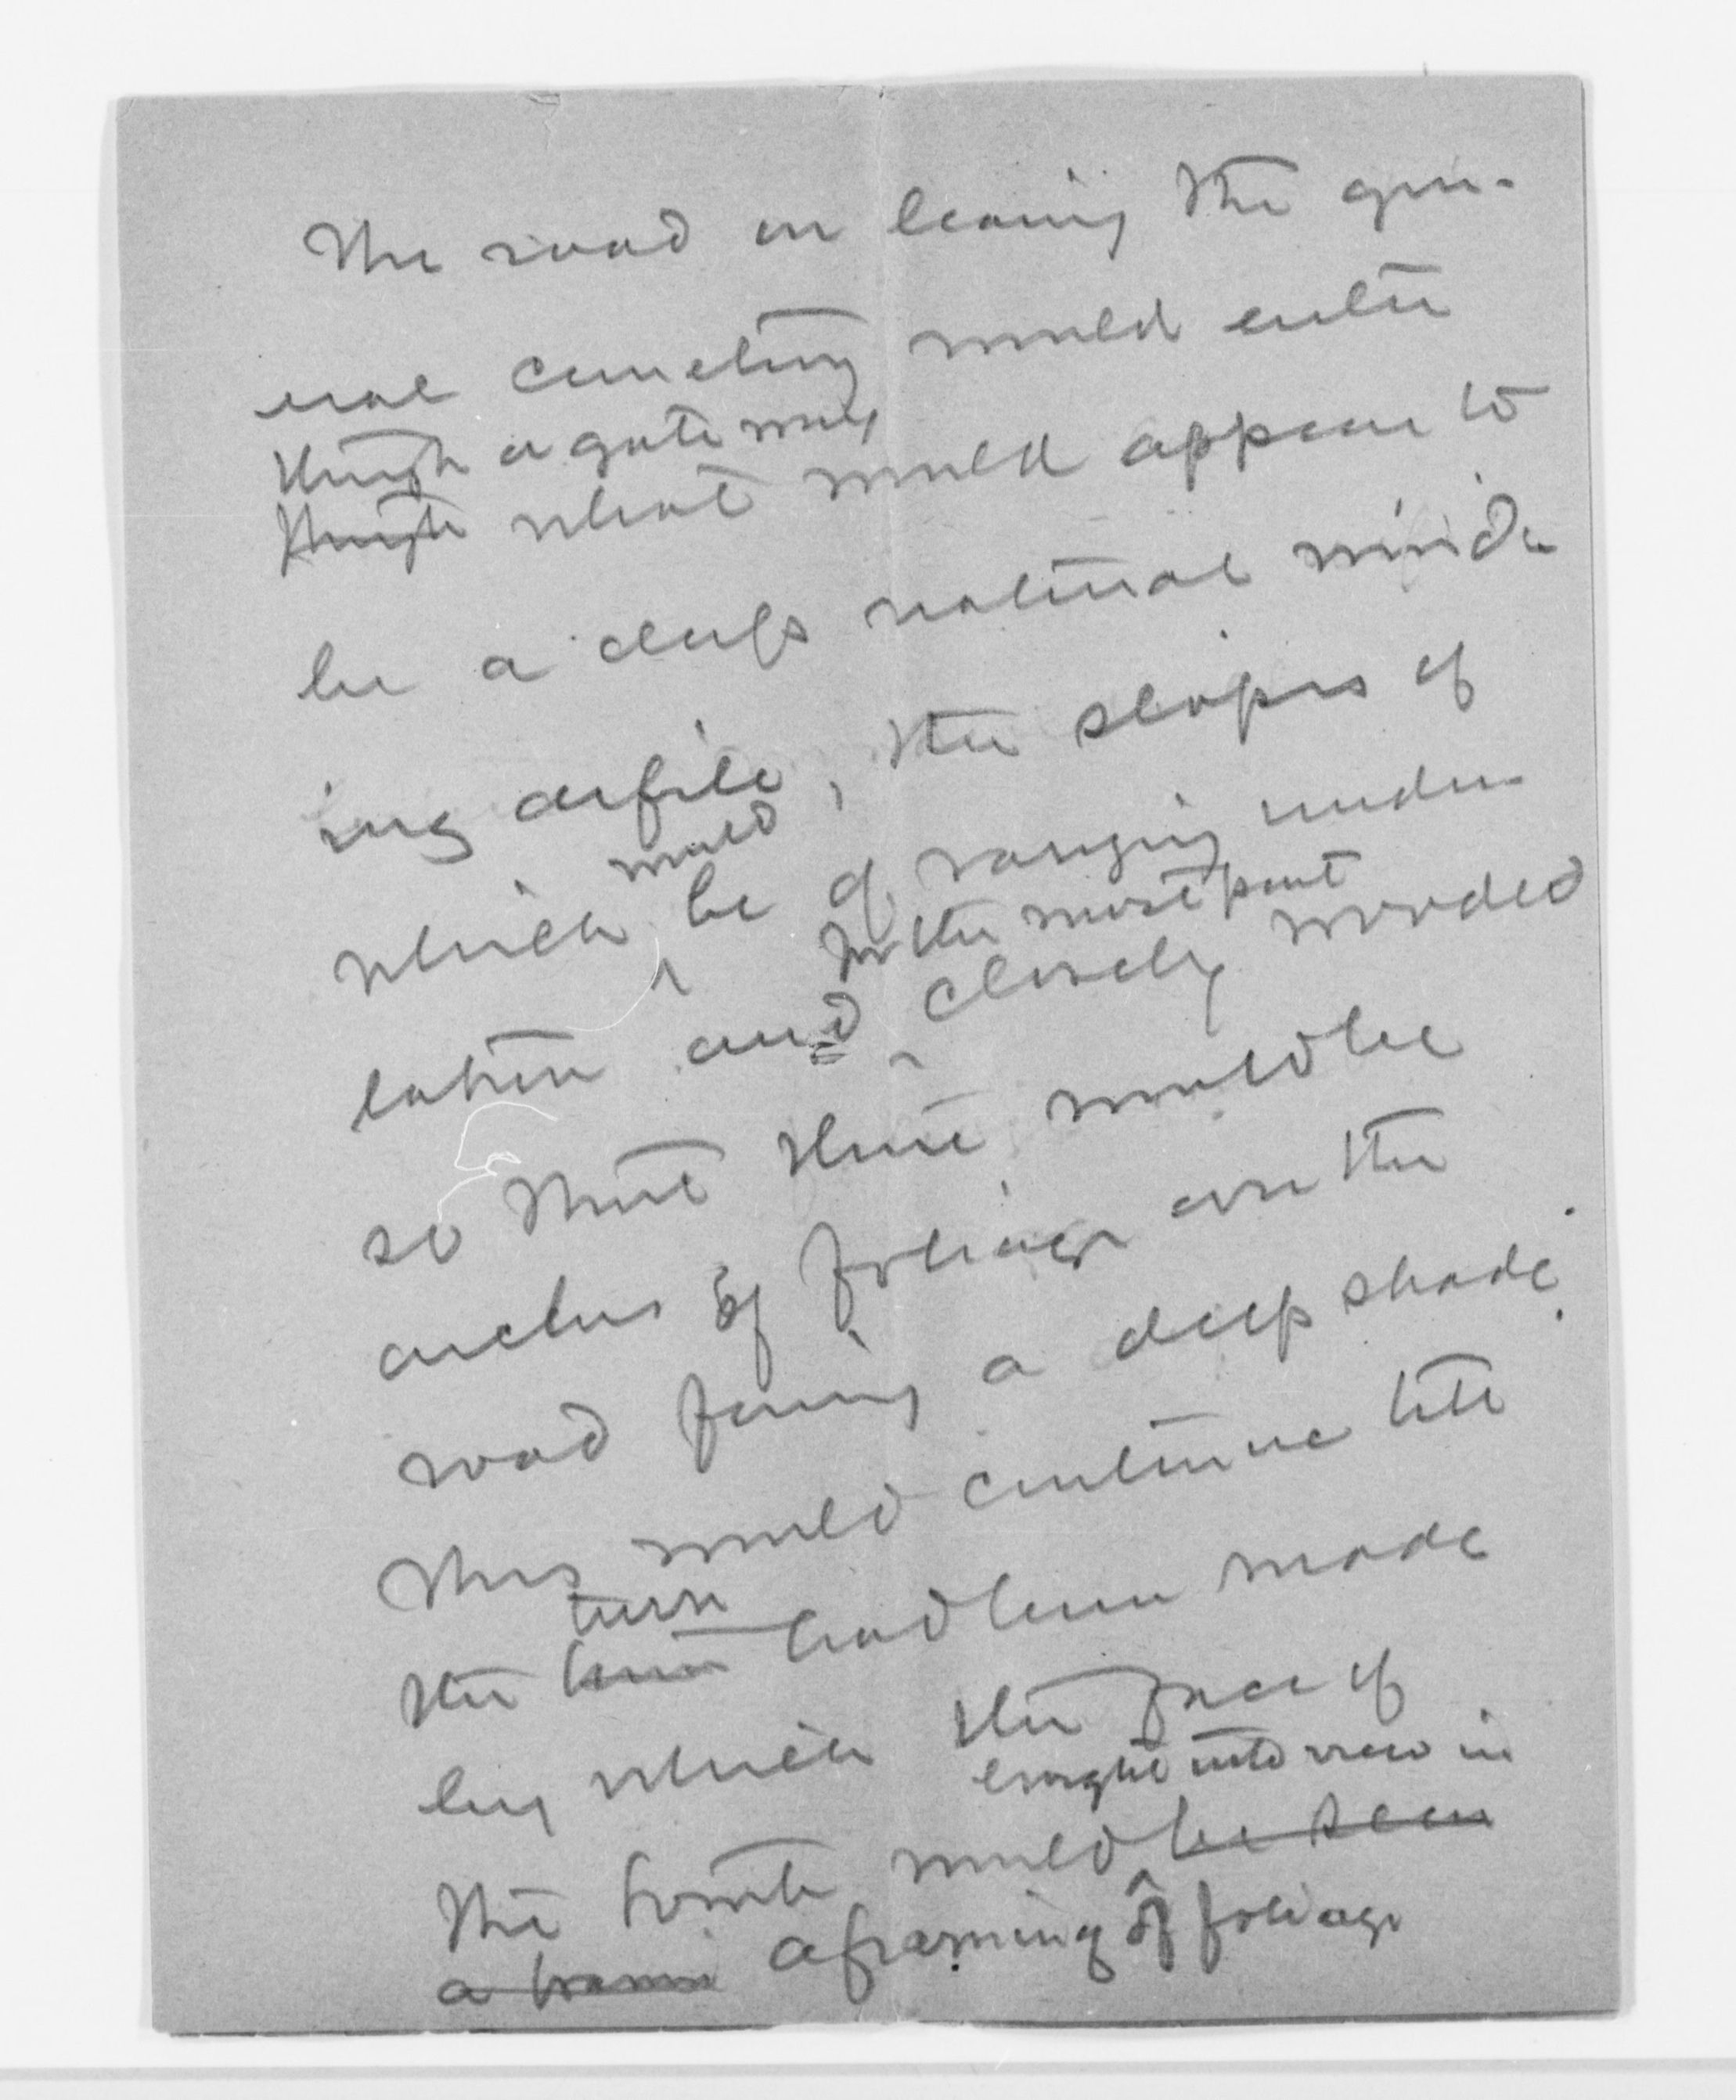 The road on leaving the gen-
eral cemetery would enter
through a gateway
through what would appear to
be a deep natural wind-
ing defile, the slopes of
would
which be of varying undu-
for the most part
lation and closely wooded
so that there would be
arches of foliage over the
road forming a deep shade.
This would continue till
turn
the turn had been made
by which the face of
brought into view in
the tomb would be seen
a frame a framing of foliage